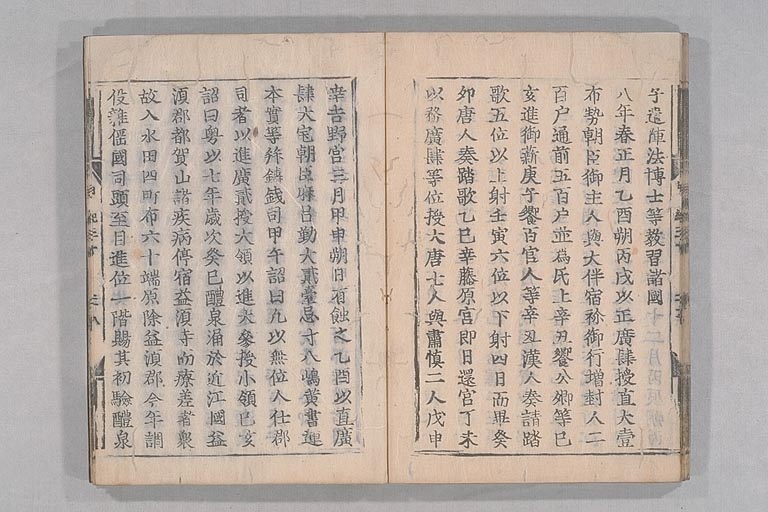 子遣陣法博士等教習諸國
八年春正月乙酉朔丙戌以正廣肆授直大壹
布勢朝臣御主人與大伴宿祢御行增封人二
百户通前五百户並爲氏上辛卯饗公卿等己
亥進御薪庚子饗百官人等辛丑漢人奏請踏
歌五位以上射壬寅六位以下射四日而畢癸
夘唐人奏踏歌乙巳幸藤原宮即日還宮丁未
以務廣肆等位授大唐七人與肅慎二人戊申
幸吉野宮三月甲申朔日有蝕之乙酉以直廣
肆大宅朝臣麻呂勤大貳臺忌寸八嶋黃書連
本實等拜鑄錢司甲午詔曰凡以無位人任郡
司者以進廣貳授大領以進大參授小領己亥
詔曰粤以七年歳次癸巳醴泉涌於近江國益
湏郡都賀山諸疾病停宿益湏寺而療差者衆
故入水田四町布六十端原除益湏郡今年調
役雜徭國司頭至目進位一階賜其初驗醴泉